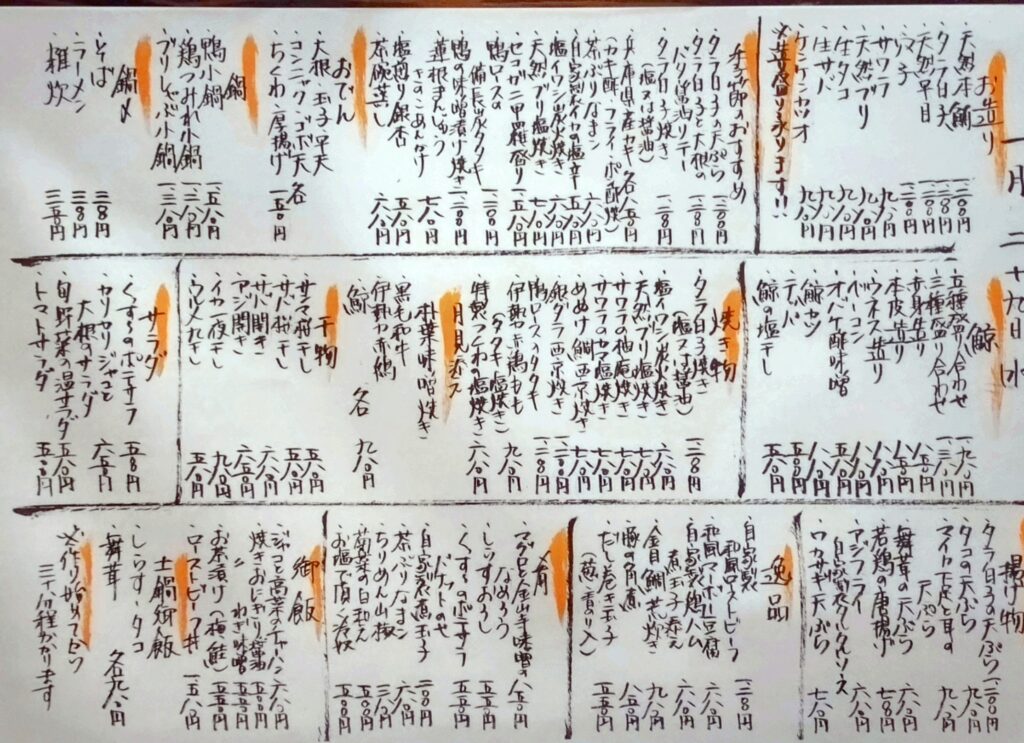 一月二十九日水
お造り
天然本鮪 一二〇〇円
タラ白子 一二八〇円
天然平目 一二〇〇円
サワラ 九八〇円
天然ブリ 九八〇円
生タコ 九八〇円
生サバ 九八〇円
ケンケンカツオ 九八〇円
※造り盛り承ります!!
季節のおすすめ
タラ白子の天ぷら 一二〇〇円
タラ白子と大根の
バター醤油ソテー
タラ白子焼き 一二八〇円
(塩又は醤油)
兵庫県産カキ 各八五〇円
(カキ酢・フライ・ポン酢焼)
茶ぶりなまこ 六八〇円
自家製イカの塩辛 五八〇円
塩イワシ炭火焼き 六八〇円
天然ブリ塩焼き 七八〇円
セコガニ甲羅盛り
鴨ロースの
備長炭タタキ
鴨の味噌漬け焼き 一二〇〇円
蓮根まんじゅう
きのこあんかけ 七八〇円
塩煎り銀杏
茶碗蒸し 六八〇円
おでん
大根・玉子・平天
コンニャク・ゴボ天
ちくわ・厚揚げ 各 一五〇円
鍋
鴨小鍋 一五〇〇円
鶏つみれ小鍋 一三〇〇円
ブリしゃぶ小鍋 一三八〇円
鍋〆
そば 三八〇円
ラーメン 三八〇円
雑炊 三五〇円
鯨
五種盛り合わせ 一九八〇円
三種盛り合わせ 一三八〇円
赤身造り
本皮造り
ウネス造り
ベーコン
オバケ酢味噌
鯨カツ
テッパ
鯨の塩干し 五八〇円
焼き物
タラ白子焼き 一二八〇円
(塩又は醤油)
塩イワシ炭火焼き 六八〇円
天然ブリ塩焼き 七八〇円
サワラの柚庵焼き 七八〇円
サワラのゴマ塩焼き 七八〇円
ぬめぬめ鯛西京焼き 七八〇円
銀ダラ西京焼き 一二〇〇円
鴨ロースタタキ 一二八〇円
伊勢赤鶏もも
(タタキ・塩焼き) 九八〇円
特製つくねの塩焼き 六八〇円
朴葉味噌焼き
黒毛和牛
伊勢赤鶏
鯨 各 九八〇円
干物
サンマ桜干し 五八〇円
サバ桜干し 五八〇円
サバ開き 六八〇円
アジ開き 六五〇円
イカ一夜干し 九八〇円
ウルメ丸干し 五八〇円
サラダ
くずきのポテサラ 五八〇円
カリカリジャコと
大根のサラダ 六五〇円
旬野菜の温サラダ 五八〇円
トマトサラダ 五五〇円
揚げ物
タラ白子の天ぷら 一二〇〇円
タコの天ぷら 九八〇円
マイカ下足と耳の
天ぷら 九八〇円
舞茸の天ぷら 六八〇円
若鶏の唐揚げ 七八〇円
アジフライ 八八〇円
自家製タルタルソース
ワカサギ天ぷら 七八〇円
逸品
自家製
和風ローストビーフ 一二八〇円
和風マーボー豆腐 六八〇円
自家製鶏ハム 六八〇円
煮玉子添え
金目鯛荒炊き 九八〇円
豚の角煮 八五〇円
だし巻き玉子 六五〇円
(葱の香り入)
肴
マグロと金山寺味噌の
なめろう 八五〇円
しらすおろし 五五〇円
くずきのポテサラ 五八〇円
バケットのせ
自家製煮玉子 二八〇円
茶ぶりなまこ 六八〇円
ちりめん山椒 三八〇円
菊菜の白和え 五八〇円
お塩で頂く冷奴 五〇〇円
御飯
ジャコと高菜のチャーハン 六八〇円
焼きおにぎり・醤油 五五〇円
ねぎ味噌 五五〇円
お茶漬け(梅・鮭) 五八〇円
ローストビーフ丼 一五八〇円
土鍋御飯
しらす・タコ
舞茸 各九八〇円
※作り始めてから
三十分程かかります